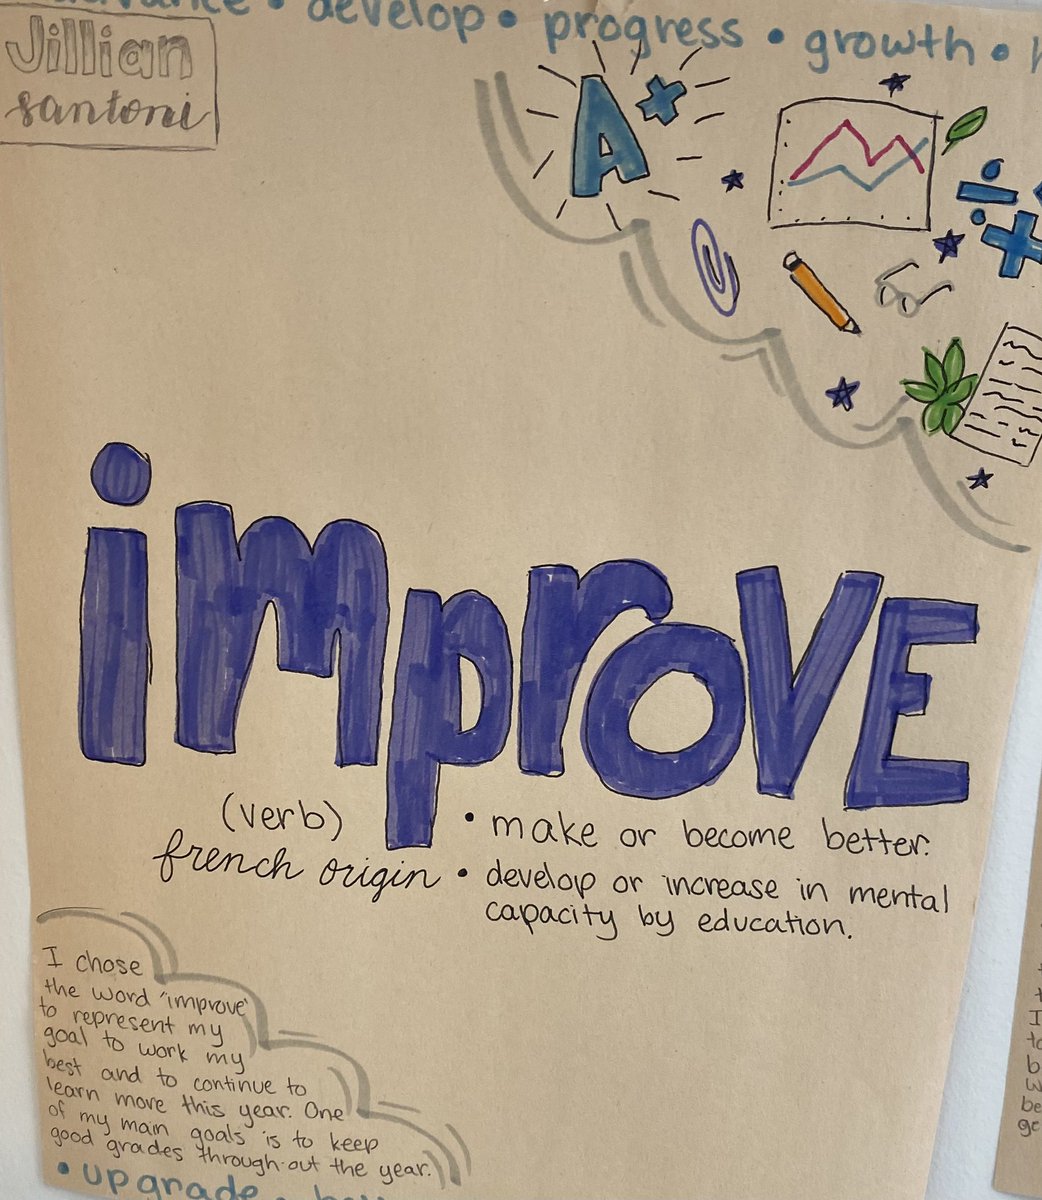 • develop • progress • growth •
Jillian
santoni
A+
improve
(verb)
french origin
• make or become better.
• develop or increase in mental
capacity by education.
I chose
the word "improve"
to represent my
goal to work my
best and to continue to
learn more this year. One
of my main goals is to keep
good grades through-out the year.
• upgrade •